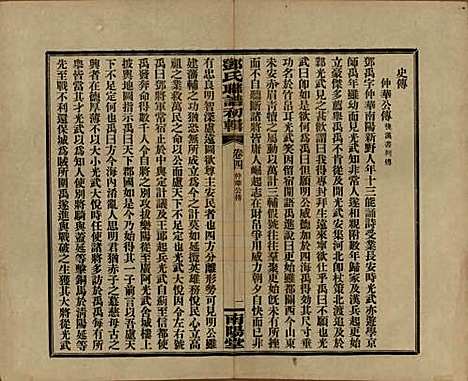 史傳
仲華公傳 後漢書列傳
鄧禹字仲華南陽新野人年十三能誦詩受業長安時光武亦遊學京
師禹年雖幼而見光武知非常人遂相親附數年歸家及漢兵起更始
立豪傑多薦舉禹禹不肯從及聞光武安集河北即杖策北渡追及於
鄴光武見之甚歡謂曰我得專封拜生遠來寧欲仕乎禹曰不願也光
武曰即如是何欲爲禹曰但願明公威德加於四海禹得效其尺寸垂
功名於竹帛耳光武笑因留宿閒語禹進說曰更始雖都關西今山東
未安赤眉青犢之屬動以萬數三輔假號往往羣聚更始既未有所挫
而不自聽斷諸將皆庸人崛起志在財帛爭用威力朝夕自快而已非
鄧氏聯譜初輯 卷四 仲華公傳 一 南陽堂
有忠良明智深慮遠圖欲尊主安民者也四方分崩離析形勢可見明公雖
建藩輔之功猶恐無所成立於今之計莫如延攬英雄務悅民心立高
祖之業救萬民之命以公而慮天下不足定也光武大悅因令左右號
禹曰鄧將軍常宿止於中與定計議及王郎起兵光武自薊至信都使
禹發奔命得數千人令自將之別攻拔樂陽從至廣阿光武舍城樓上
披輿地圖指示禹曰天下郡國如是今始乃得其一子前言以吾慮天
下不足定何也禹曰方今海內淆亂人思明君猶赤子之慕慈母古之
興者在德薄厚不以大小光武悅
使別將騎與蓋延等擊銅馬於淸陽延等
先至戰不利還保城爲賊所圍禹遂進與戰破之生獲其大將從光武